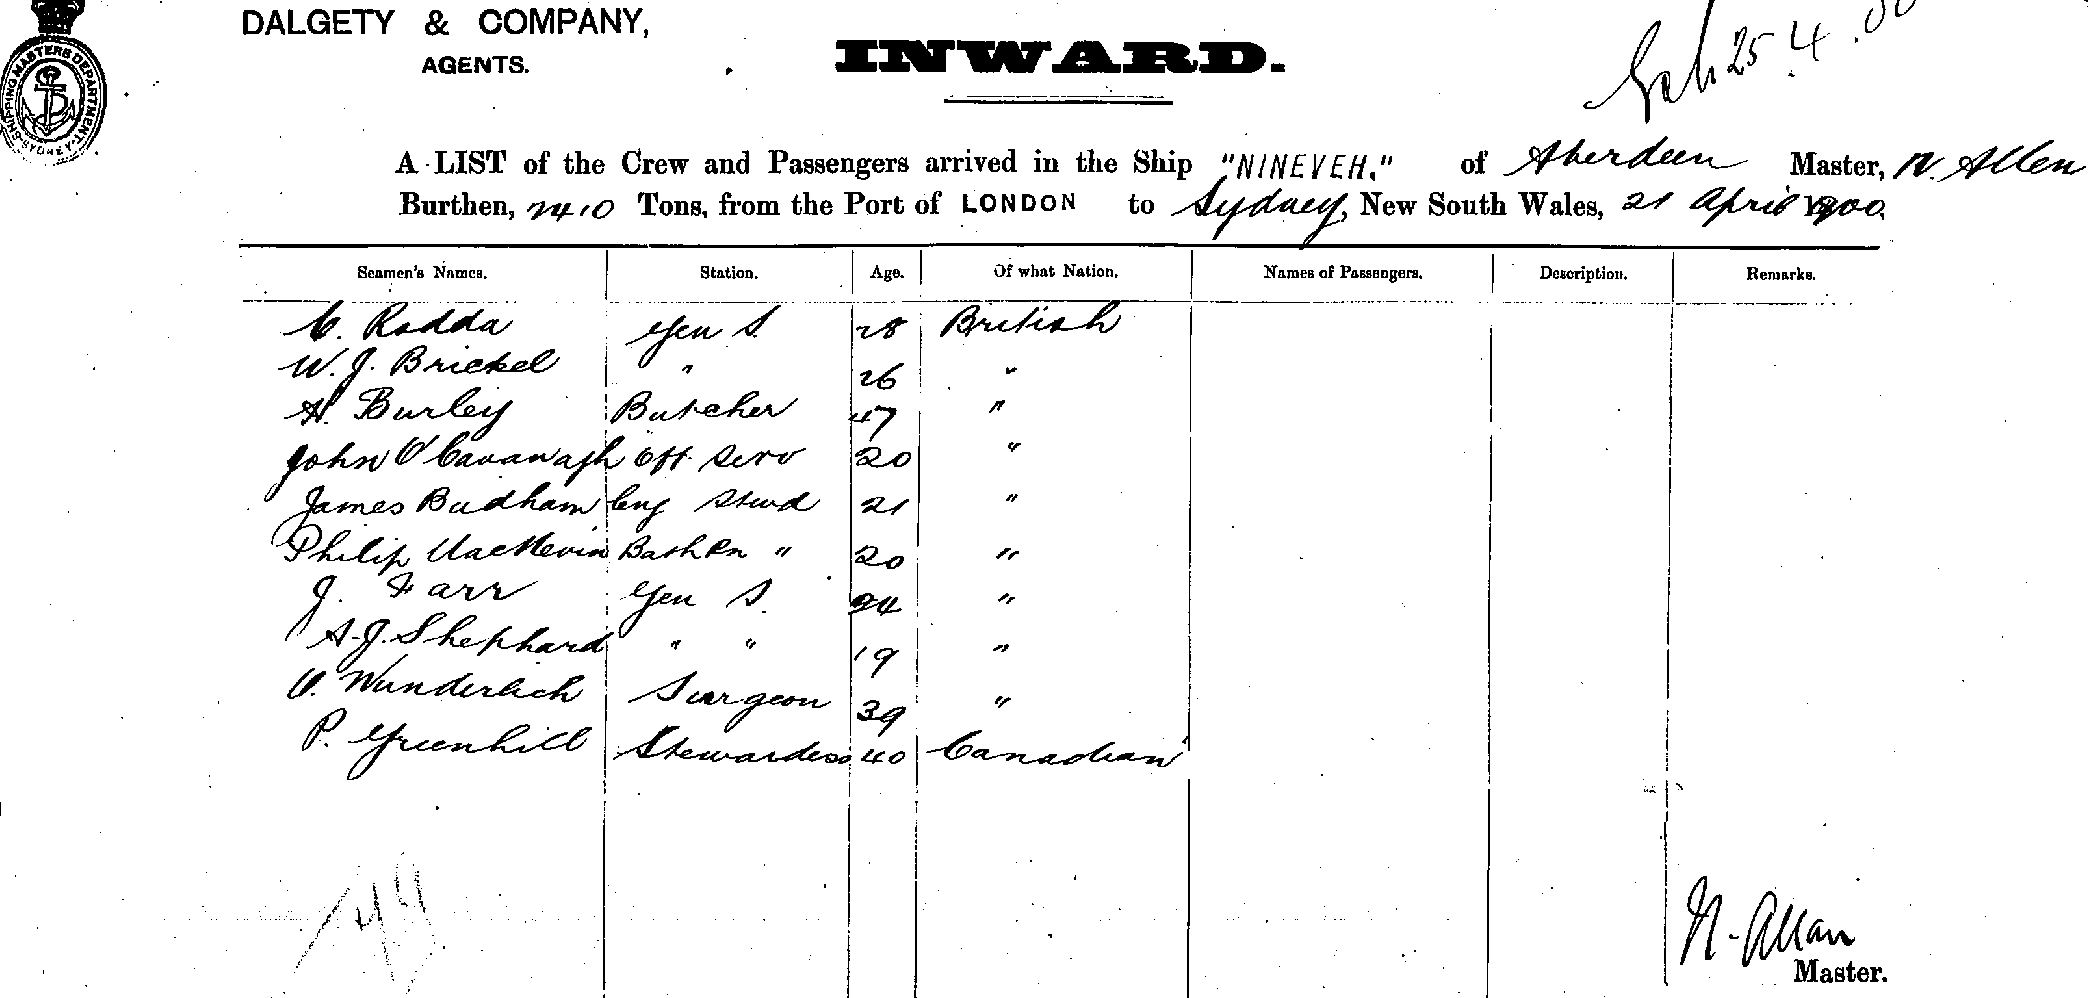 DALGETY & COMPANY,
AGENTS.
INWARD.
25.4.00
SHIPPING MASTERS DEPARTMENT SYDNEY
A LIST of the Crew and Passengers arrived in the Ship "NINEVEH," of Aberdeen Master, N. Allen
Burthen, 2410 Tons, from the Port of LONDON to Sydney, New South Wales, 21 April 1900
Seamen's Names. Station. Age. Of what Nation. Names of Passengers. Description. Remarks.
C. Rodda Gen S. 28 British
W. J. Brickel " 26 "
H. Burley Butcher 47 "
John O'Cavanagh Off Serv 20 "
James Budham Eng Stwd 21 "
Philip MacNevin Bath Rn " 20 "
J. Farr Gen S. 24 "
A. J. Shephard " " 19 "
O. Wunderlich Surgeon 39 "
P. Greenhill Stewardess 40 Canadian
49
N. Allan
Master.